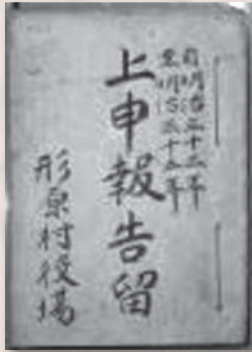 自明治二十二年
至明治三十五年
上申報告留
形原村役場